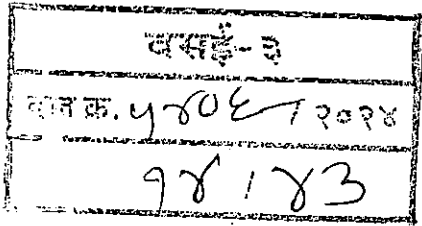 वसई-३
दस्त क्र. ५४०६ / २०२४
१४ / ४३